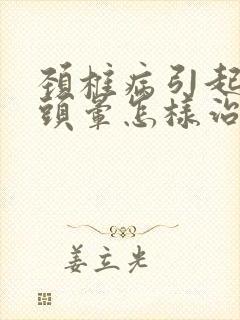 頚椎病引起
頭暈怎樣治
姜立光